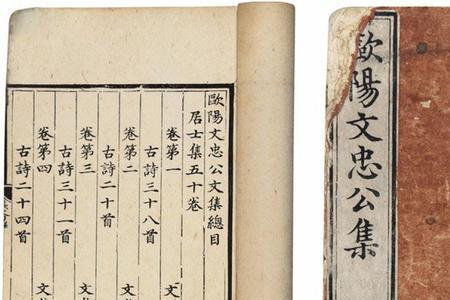 歐陽文忠公文集總目
居士集五十卷
卷第一 文
古詩三十八首
卷第二 文
古詩二十首
卷第三 文
古詩三十一首
卷第四 文
古詩二十四首
歐陽文忠公集